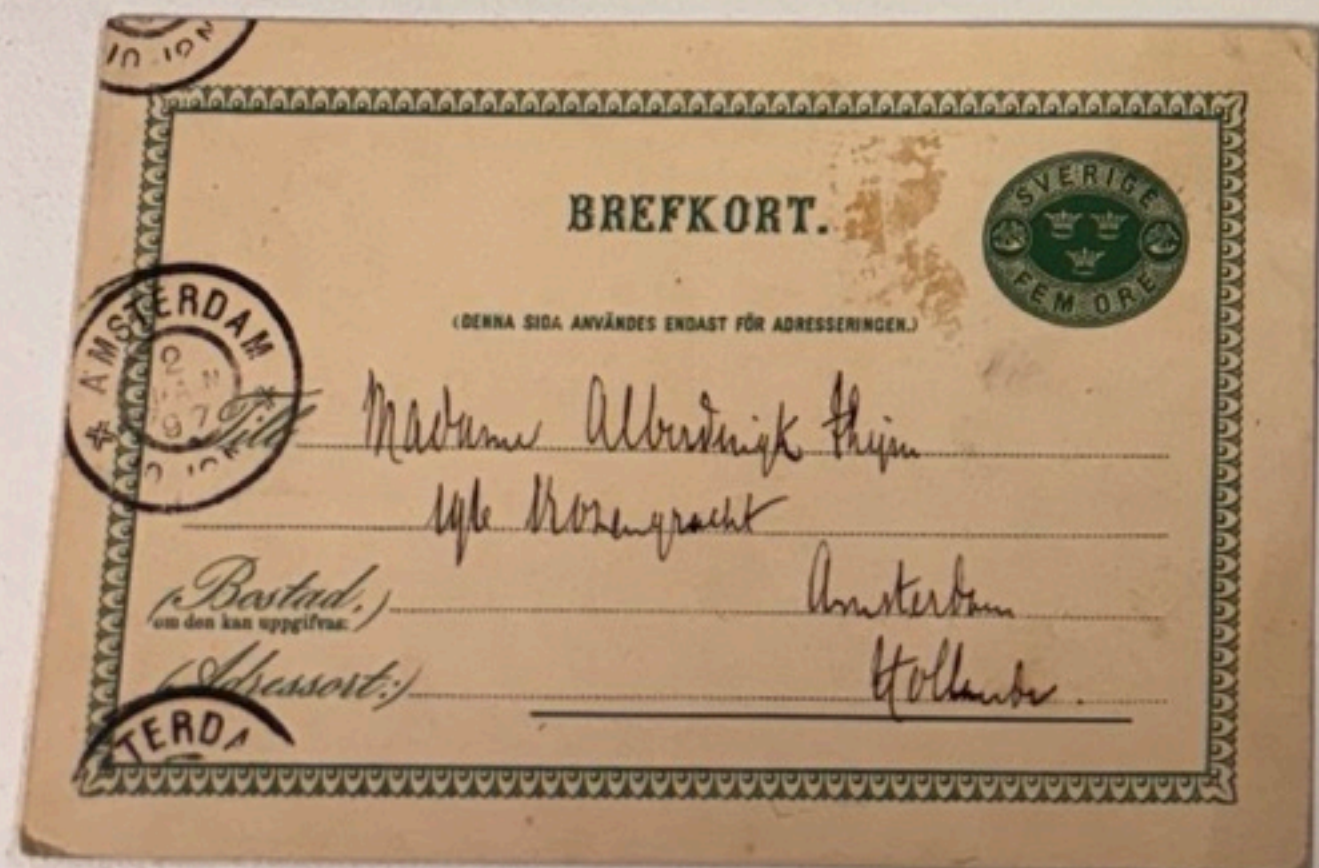 BREFKORT.
SVERIGE
FEM ÖRE
(DENNA SIDA ANVÄNDES ENDAST FÖR ADRESSERINGEN.)
AMSTERDAM
2
JAN
97
Till
Madame Alberdingk Thijm
Rozengracht
(Bostad,)
om den kan uppgifvas:
Amsterdam
(Adressort:)
Hollande.
TERDA